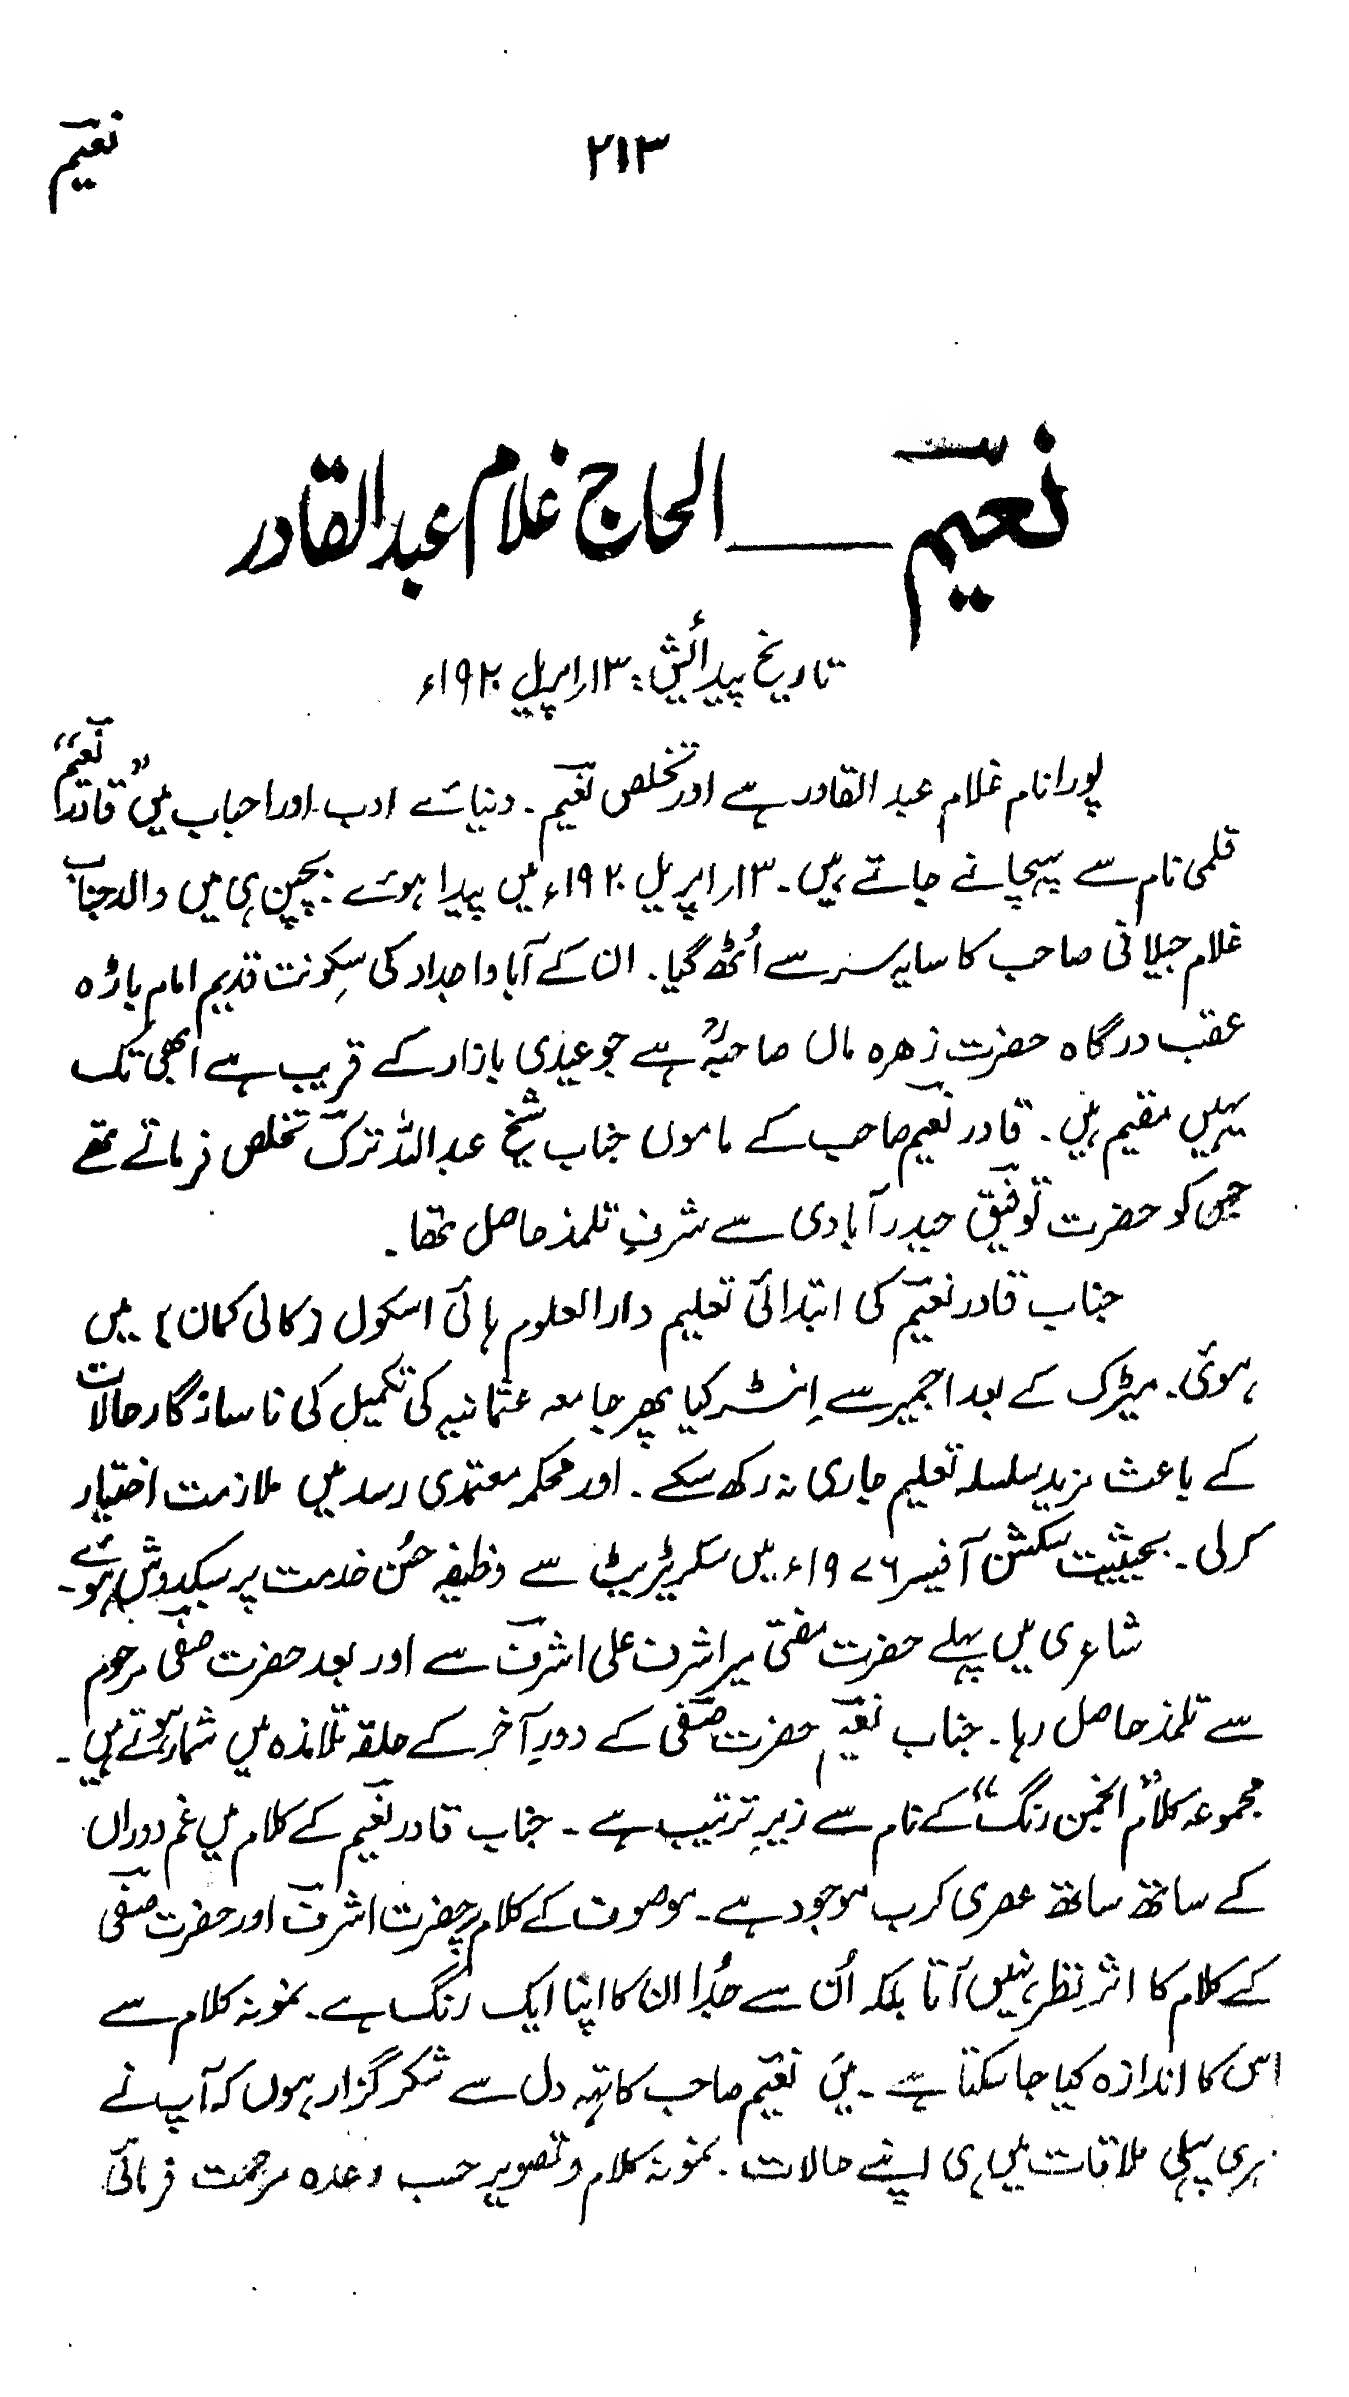 ۲۱۳
نعیم
نعیم ــــ الحاج غلام عبدالقادر
تاریخ پیدائش: ۱۳؍اپریل ۱۹۲۰ء
پورا نام غلام عبدالقادر ہے اور تخلص نعیم۔ دنیائے ادب اور احباب میں ”قادر نعیم“
قلمی نام سے پہچانے جاتے ہیں۔ ۱۳؍اپریل ۱۹۲۰ء میں پیدا ہوئے۔ بچپن ہی میں والد جناب
غلام جیلانی صاحب کا سایہ سر سے اُٹھ گیا۔ ان کے آبا و اجداد کی سکونت قدیم امام باڑہ
عقب درگاہ حضرت زھرہ ماں صاحبہؒ ہے جو عیدی بازار کے قریب ہے ابھی تک
یہیں مقیم ہیں۔ قادر نعیم صاحب کے ماموں جناب شیخ عبداللہ ترکؔ تخلص فرماتے تھے
جن کو حضرت توفیقؔ حیدرآبادی سے شرفِ تلمذ حاصل تھا۔
جناب قادر نعیمؔ کی ابتدائی تعلیم دارالعلوم ہائی اسکول (کالی کمان) میں
ہوئی۔ میٹرک کے بعد اجمیر سے اِنٹر کیا پھر جامعہ عثمانیہ کی تکمیل کی ناسازگار حالات
کے باعث مزید سلسلہ تعلیم جاری نہ رکھ سکے۔ اور محکمہ معتمدی رسد میں ملازمت اختیار
کرلی۔ بحیثیت سکشن آفیسر ۱۹۷۶ء میں سکریٹریٹ سے وظیفہ حُسن خدمت پر سبکدوش ہوئے۔
شاعری میں پہلے حضرت مفتی میر اشرف علی اشرفؔ سے اور بعد حضرت صفیؔ مرحوم
سے تلمذ حاصل رہا۔ جناب نعیمؔ حضرت صفیؔ کے دورِ آخر کے حلقہ تلامذہ میں شمار ہوتے ہیں۔
مجموعہ کلام ”انجمن رنگ“ کے نام سے زیرِ ترتیب ہے۔ جناب قادر نعیمؔ کے کلام میں غم دوراں
کے ساتھ ساتھ عصری کرب موجود ہے۔ موصوف کے کلام پر حضرت اشرفؔ اور حضرت صفیؔ
کے کلام کا اثر نظر نہیں آتا بلکہ اُن سے جُدا ان کا اپنا ایک رنگ ہے۔ نمونہ کلام سے
اس کا اندازہ کیا جاسکتا ہے۔ میں نعیمؔ صاحب کا تہہ دل سے شکر گزار ہوں کہ آپ نے
میری پہلی ملاقات میں ہی اپنے حالات۔ نمونہ کلام و تصویر حسب وعدہ مرحمت فرمائی